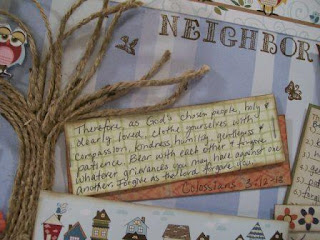 NEIGHBOR
Therefore, as God's chosen people, holy &
dearly loved, clothe yourselves with
compassion, kindness, humility, gentleness &
patience. Bear with each other & forgive
whatever grievances you may have against one
another. Forgive as the Lord forgave you.
Colossians 3:12-13